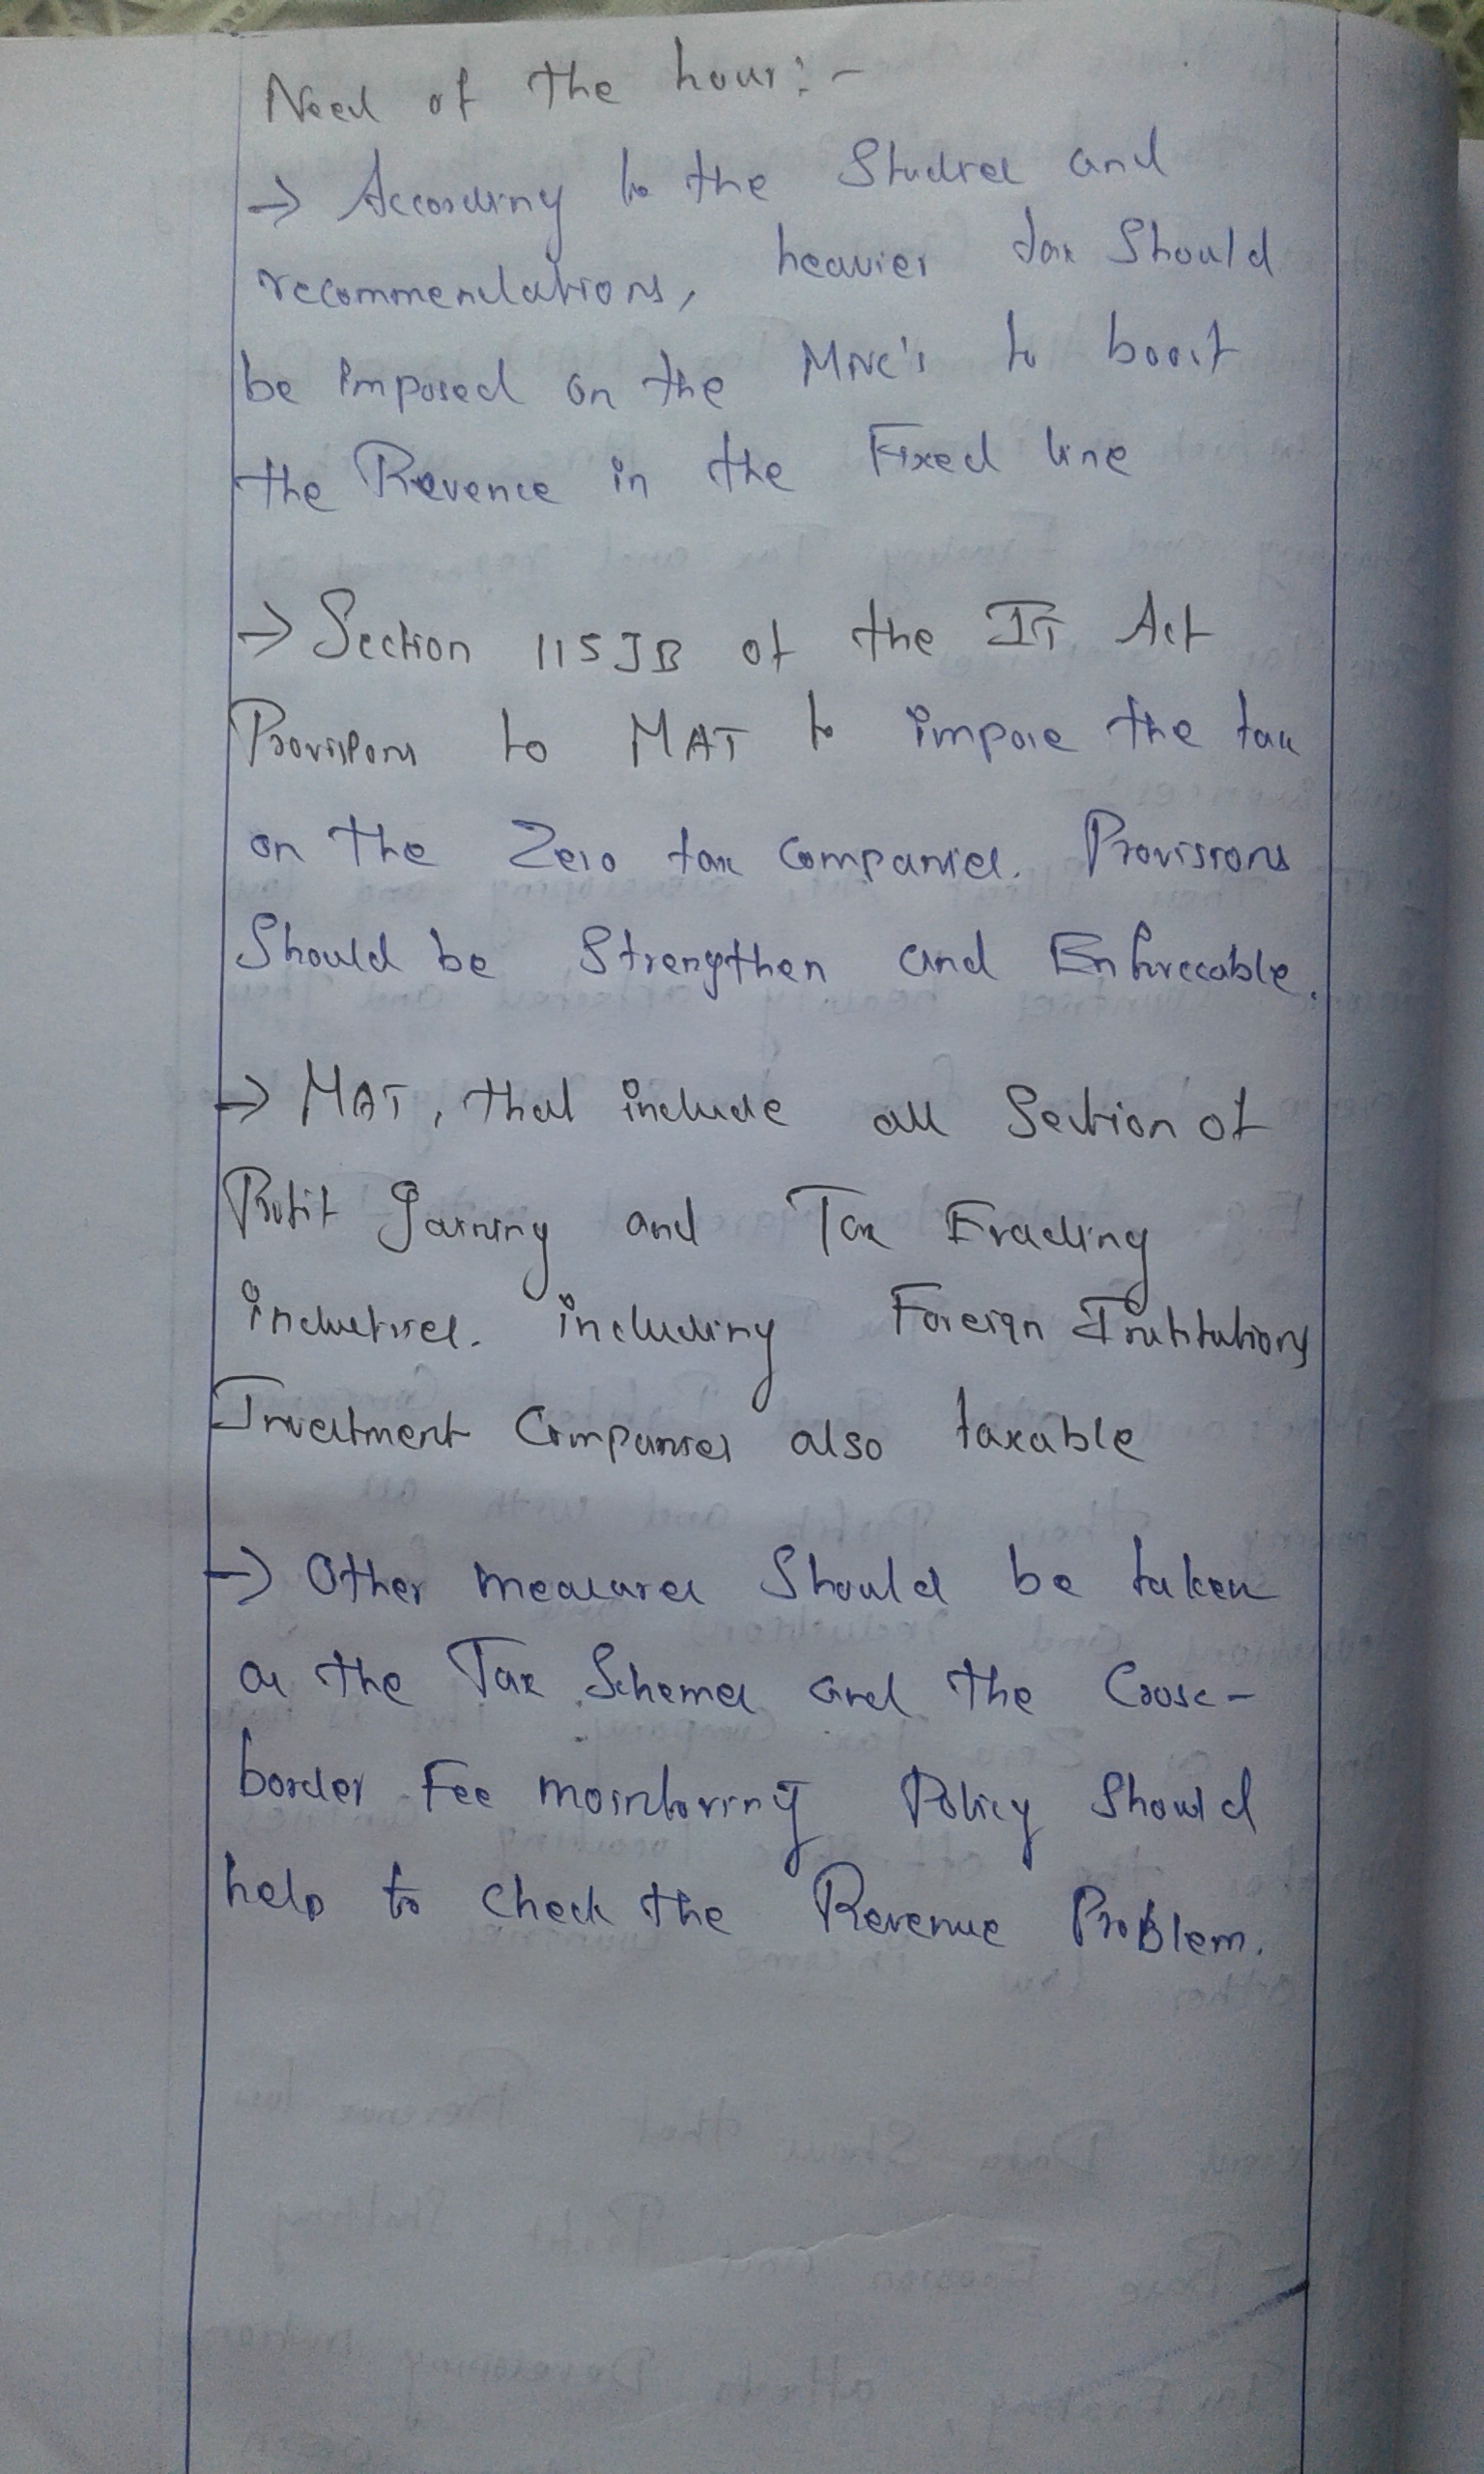 Need of the hour:-
→ According to the Studies and
recommendations, heavier tax should
be imposed on the MNC's to boost
the Revence in the Fixed line
→ Section 115JB of the IT Act
Provisions to MAT to impose the tax
on the Zero tax Companies. Provisions
Should be Strengthen and Enforceable.
→ MAT, that include all Section of
Profit Gaining and Tax Evading
industries. including Foreign Institutions
Investment Companies also taxable
→ Other measures Should be taken
as the Tax Schemes and the Cross-
border Fee monitoring Policy Should
help to check the Revenue Problem.